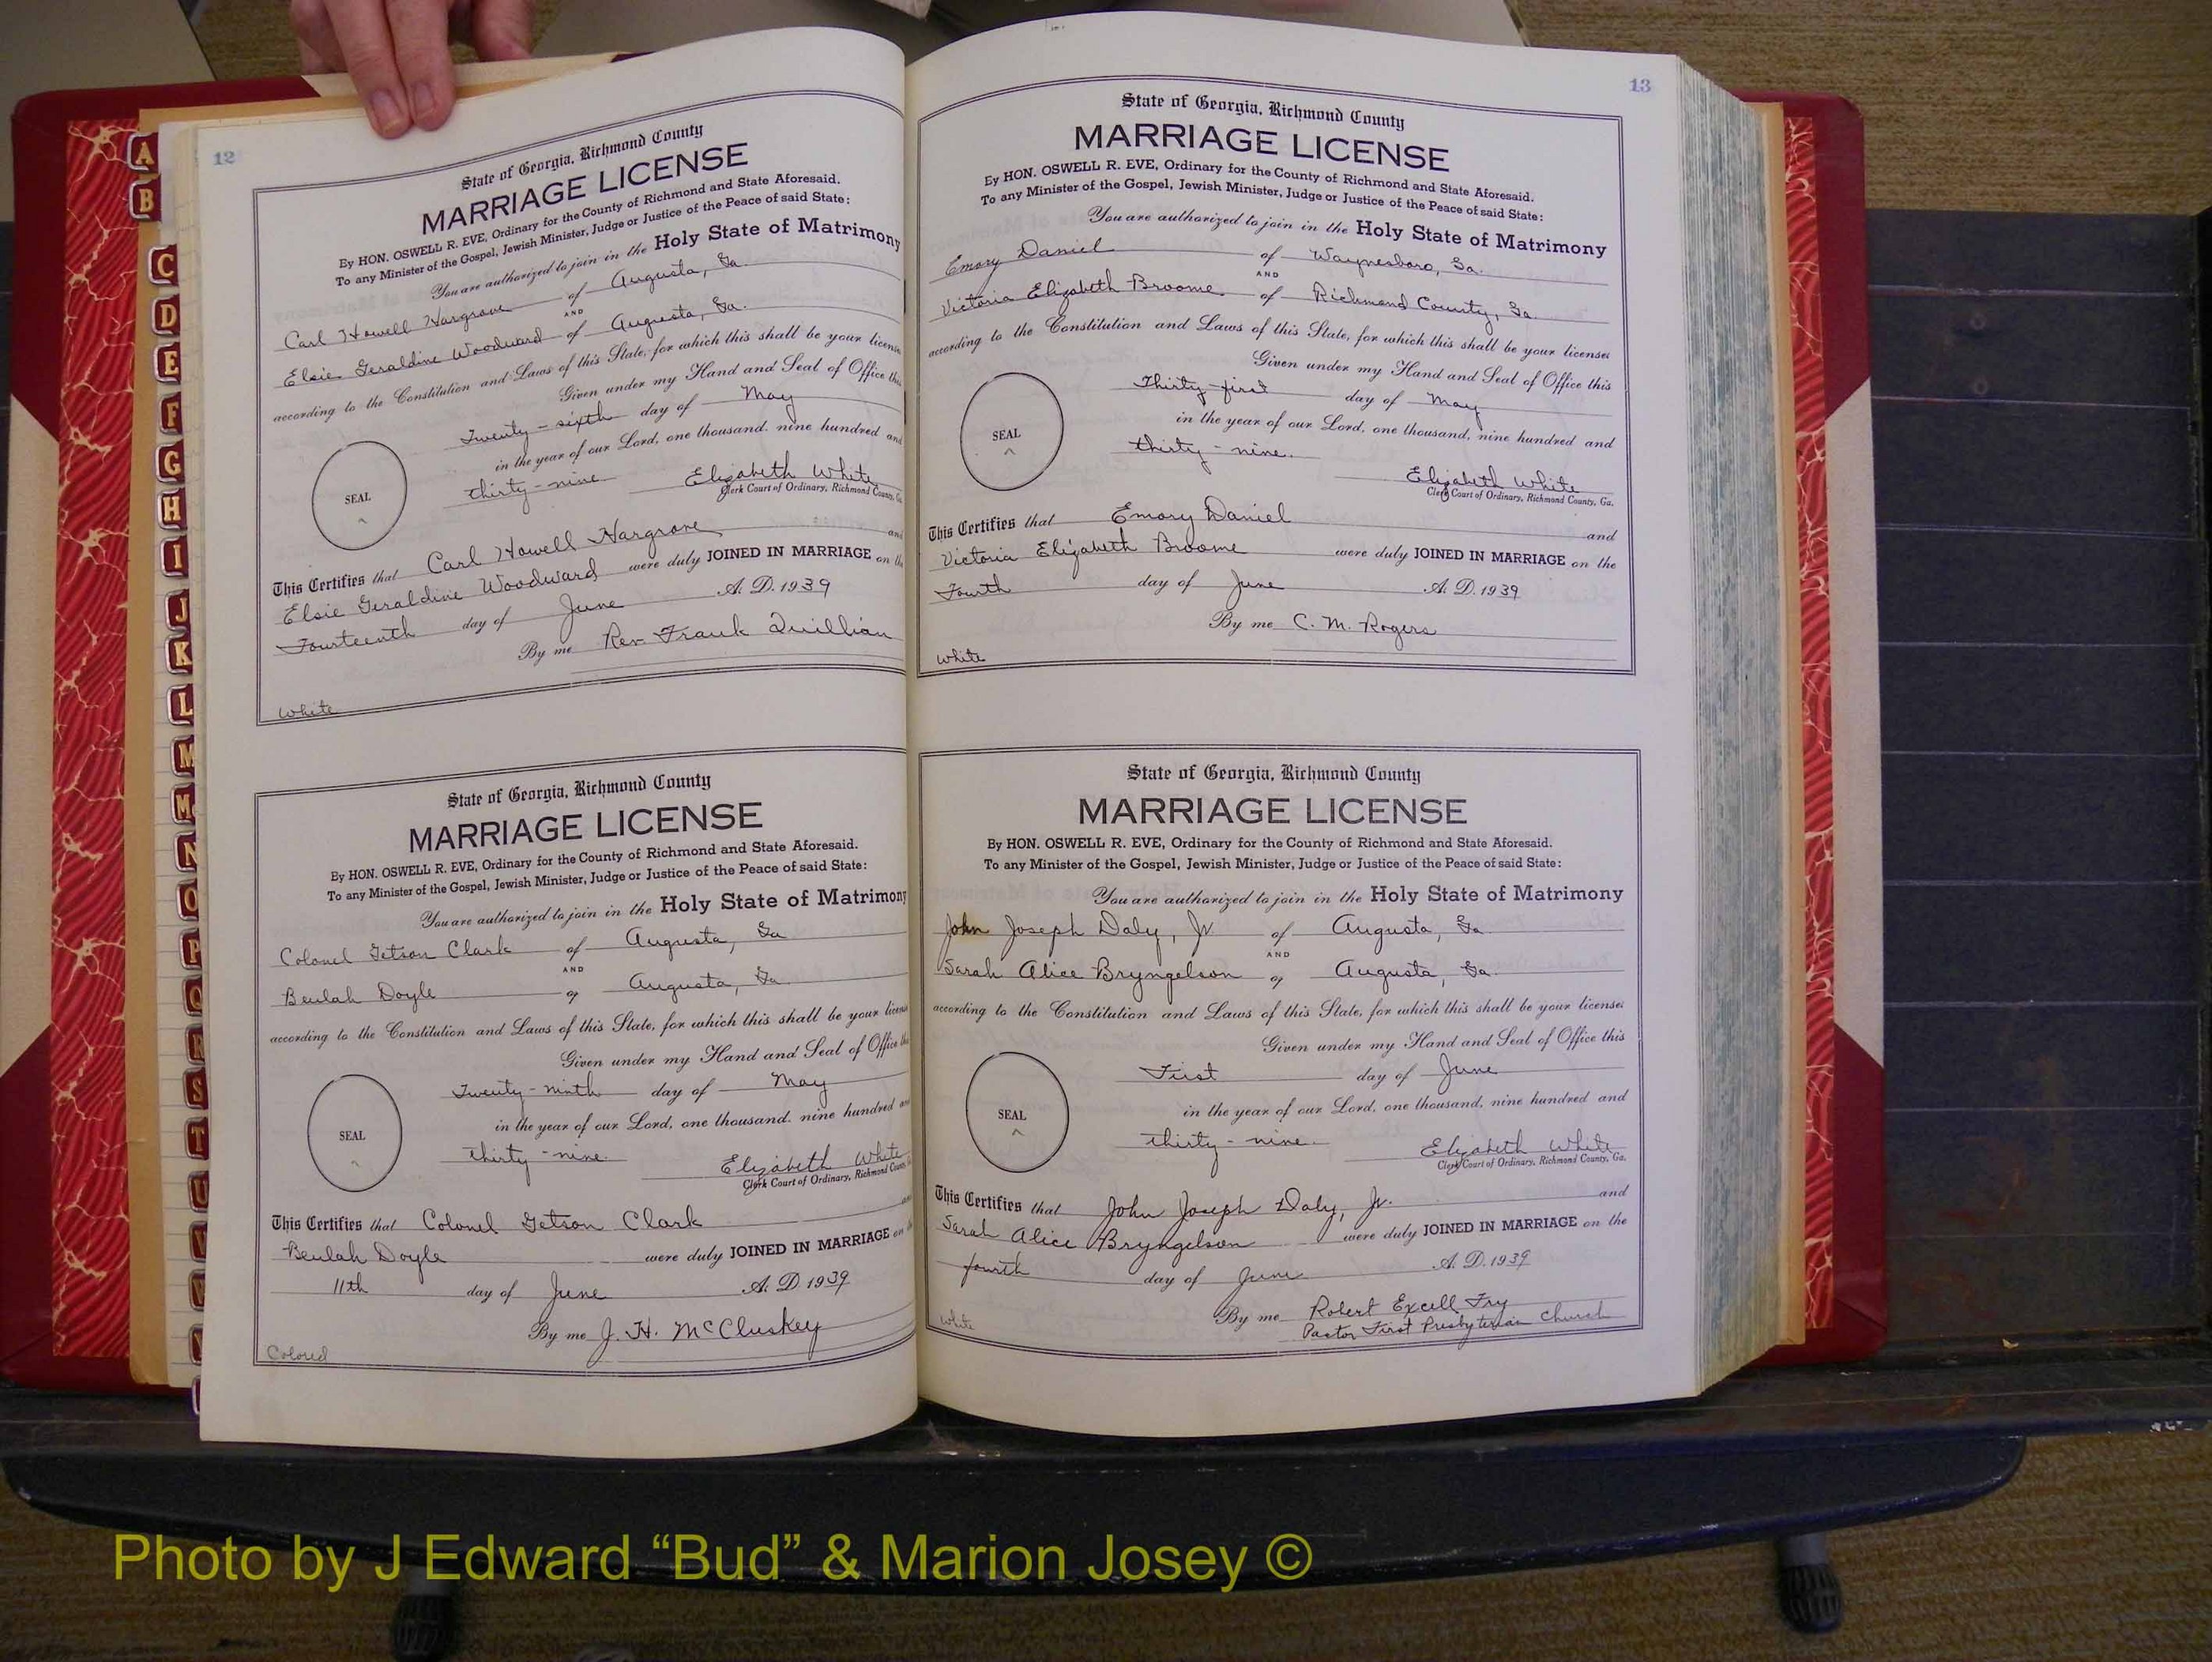 12
State of Georgia, Richmond County
MARRIAGE LICENSE
By HON. OSWELL R. EVE, Ordinary for the County of Richmond and State Aforesaid.
To any Minister of the Gospel, Jewish Minister, Judge or Justice of the Peace of said State:
You are authorized to join in the Holy State of Matrimony
Carl Howell Hargrove of Augusta, Ga.
AND
Elsie Geraldine Woodward of Augusta, Ga.
according to the Constitution and Laws of this State, for which this shall be your license
Given under my Hand and Seal of Office this
Twenty-sixth day of May
in the year of our Lord, one thousand, nine hundred and
SEAL
thirty-nine Elizabeth White
Clerk Court of Ordinary, Richmond County, Ga.
This Certifies that Carl Howell Hargrove and
Elsie Geraldine Woodward were duly JOINED IN MARRIAGE on the
Fourteenth day of June A. D. 1939
By me Rev. Frank Quillian
White
State of Georgia, Richmond County
MARRIAGE LICENSE
By HON. OSWELL R. EVE, Ordinary for the County of Richmond and State Aforesaid.
To any Minister of the Gospel, Jewish Minister, Judge or Justice of the Peace of said State:
You are authorized to join in the Holy State of Matrimony
Colonel Getson Clark of Augusta, Ga
AND
Beulah Doyle of Augusta, Ga.
according to the Constitution and Laws of this State, for which this shall be your license
Given under my Hand and Seal of Office this
Twenty-ninth day of May
in the year of our Lord, one thousand, nine hundred and
SEAL
thirty-nine. Elizabeth White
Clerk Court of Ordinary, Richmond County
This Certifies that Colonel Getson Clark and
Beulah Doyle were duly JOINED IN MARRIAGE on
11th day of June A. D. 1939
By me J. H. McCluskey
Colored
13
State of Georgia, Richmond County
MARRIAGE LICENSE
By HON. OSWELL R. EVE, Ordinary for the County of Richmond and State Aforesaid.
To any Minister of the Gospel, Jewish Minister, Judge or Justice of the Peace of said State:
You are authorized to join in the Holy State of Matrimony
Emory Daniel of Waynesboro, Ga.
AND
Victoria Elizabeth Broome of Richmond County, Ga.
according to the Constitution and Laws of this State, for which this shall be your license
Given under my Hand and Seal of Office this
Thirty-first day of May
in the year of our Lord, one thousand, nine hundred and
SEAL
thirty-nine.
Elizabeth White
Clerk Court of Ordinary, Richmond County, Ga.
This Certifies that Emory Daniel and
Victoria Elizabeth Broome were duly JOINED IN MARRIAGE on the
Fourth day of June A. D. 1939
By me C. M. Rogers
White
State of Georgia, Richmond County
MARRIAGE LICENSE
By HON. OSWELL R. EVE, Ordinary for the County of Richmond and State Aforesaid.
To any Minister of the Gospel, Jewish Minister, Judge or Justice of the Peace of said State:
You are authorized to join in the Holy State of Matrimony
John Joseph Daly, Jr. of Augusta, Ga.
AND
Sarah Alice Bryngelson of Augusta, Ga.
according to the Constitution and Laws of this State, for which this shall be your license
Given under my Hand and Seal of Office this
First day of June
in the year of our Lord, one thousand, nine hundred and
SEAL
thirty-nine. Elizabeth White
Clerk Court of Ordinary, Richmond County, Ga.
This Certifies that John Joseph Daly, Jr. and
Sarah Alice Bryngelson were duly JOINED IN MARRIAGE on the
fourth day of June A. D. 1939
By me Robert Excell Fry
Pastor First Presbyterian Church
White
A
B
C
D
E
F
G
H
I
J
K
L
M
M
N
O
P
Q
R
S
T
U
V
W
Photo by J Edward “Bud” & Marion Josey ©